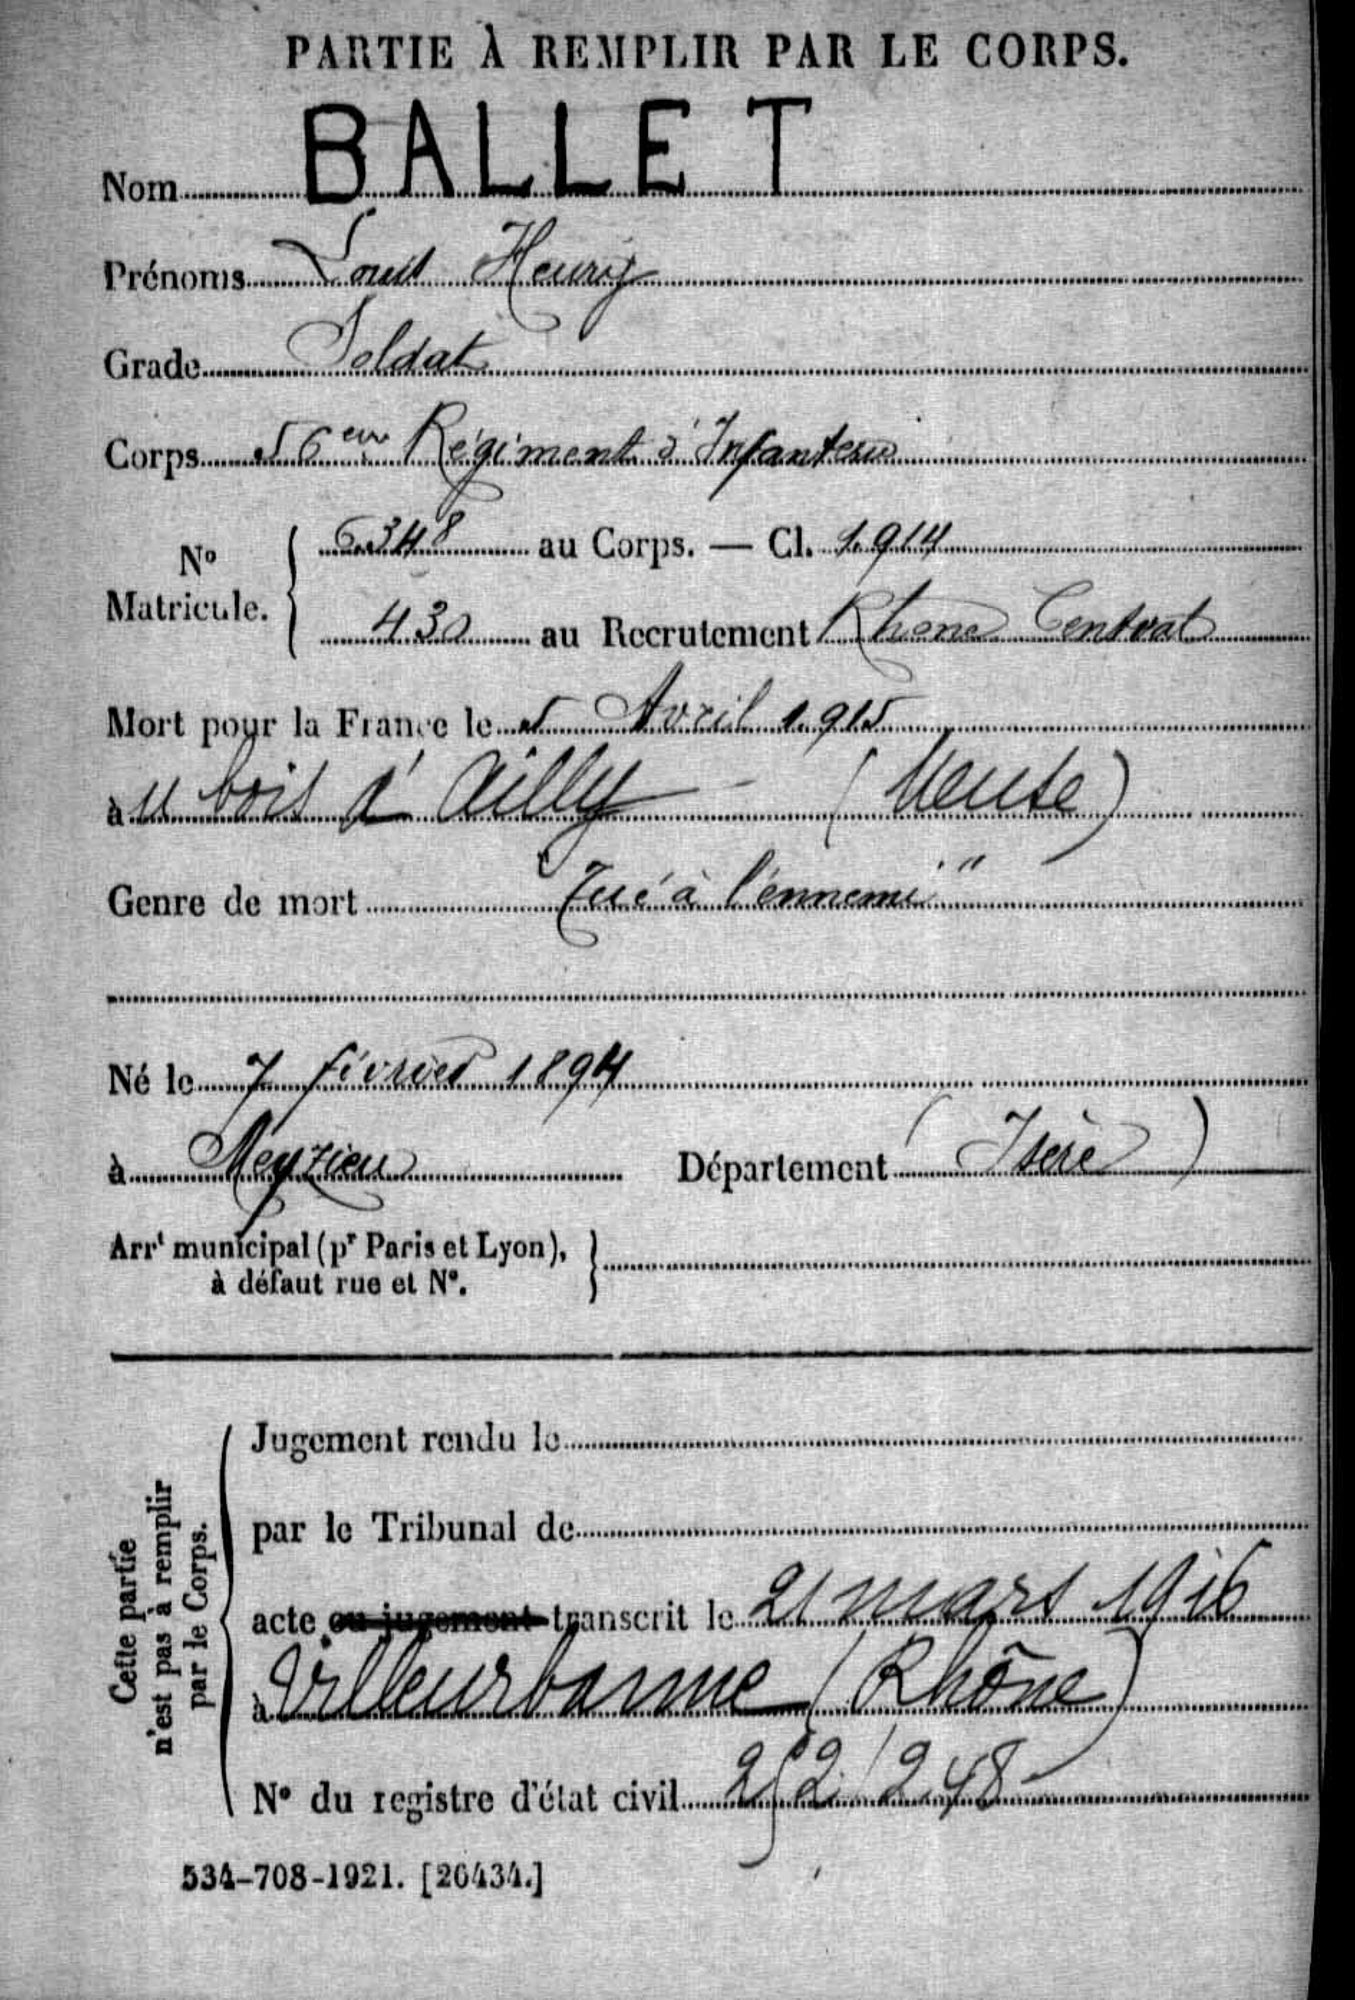 PARTIE À REMPLIR PAR LE CORPS.
Nom BALLET
Prénoms Louis Henry
Grade Soldat
Corps 56eme Régiment d'Infanterie
No Matricule. { 6348 au Corps. — Cl. 1914
430 au Recrutement Rhone Central
Mort pour la France le 5 Avril 1915
à u bois d'Ailly (Meuse)
Genre de mort "Tué à l'ennemi"
Né le 7 février 1894
à Meyzieu Département (Isère)
Arrt municipal (pr Paris et Lyon), }
à défaut rue et N°.
Cette partie
n'est pas à remplir
par le Corps.
Jugement rendu le
par le Tribunal de
acte ou jugement transcrit le 21 mars 1916
à Villeurbanne (Rhône)
N° du registre d'état civil 252/248
534-708-1921. [26434.]